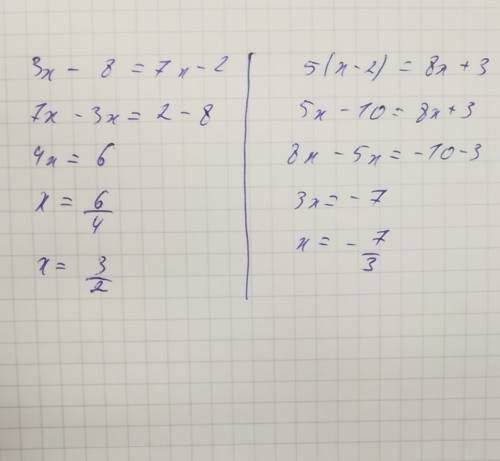 3x - 8 = 7x - 2
7x - 3x = 2 - 8
4x = 6
x = 6/4
x = 3/2
5(x-2) = 8x + 3
5x - 10 = 8x + 3
8x - 5x = -10 - 3
3x = - 7
x = - 7/3